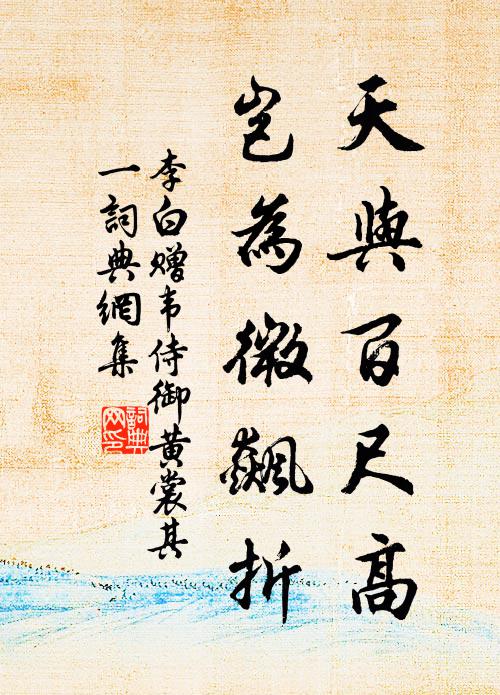 天與百尺高
豈為微飆折
李白贈韦侍御黄裳其
一詞典網集
詞典
网印